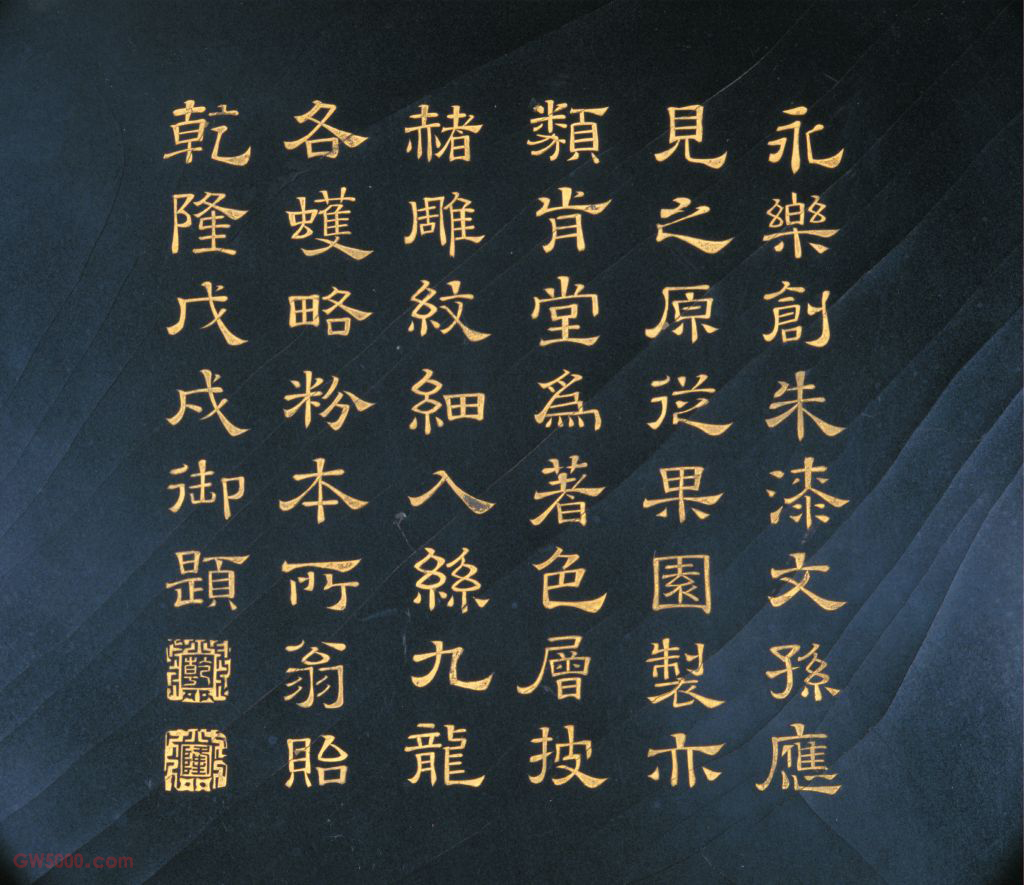 永樂創朱漆文孫應
見之原從果園製亦
類肯堂爲著色層披
赭雕紋細入絲九龍
各蠖略粉本所翁貽
乾隆戊戌御題
乾
隆
GW5000.com